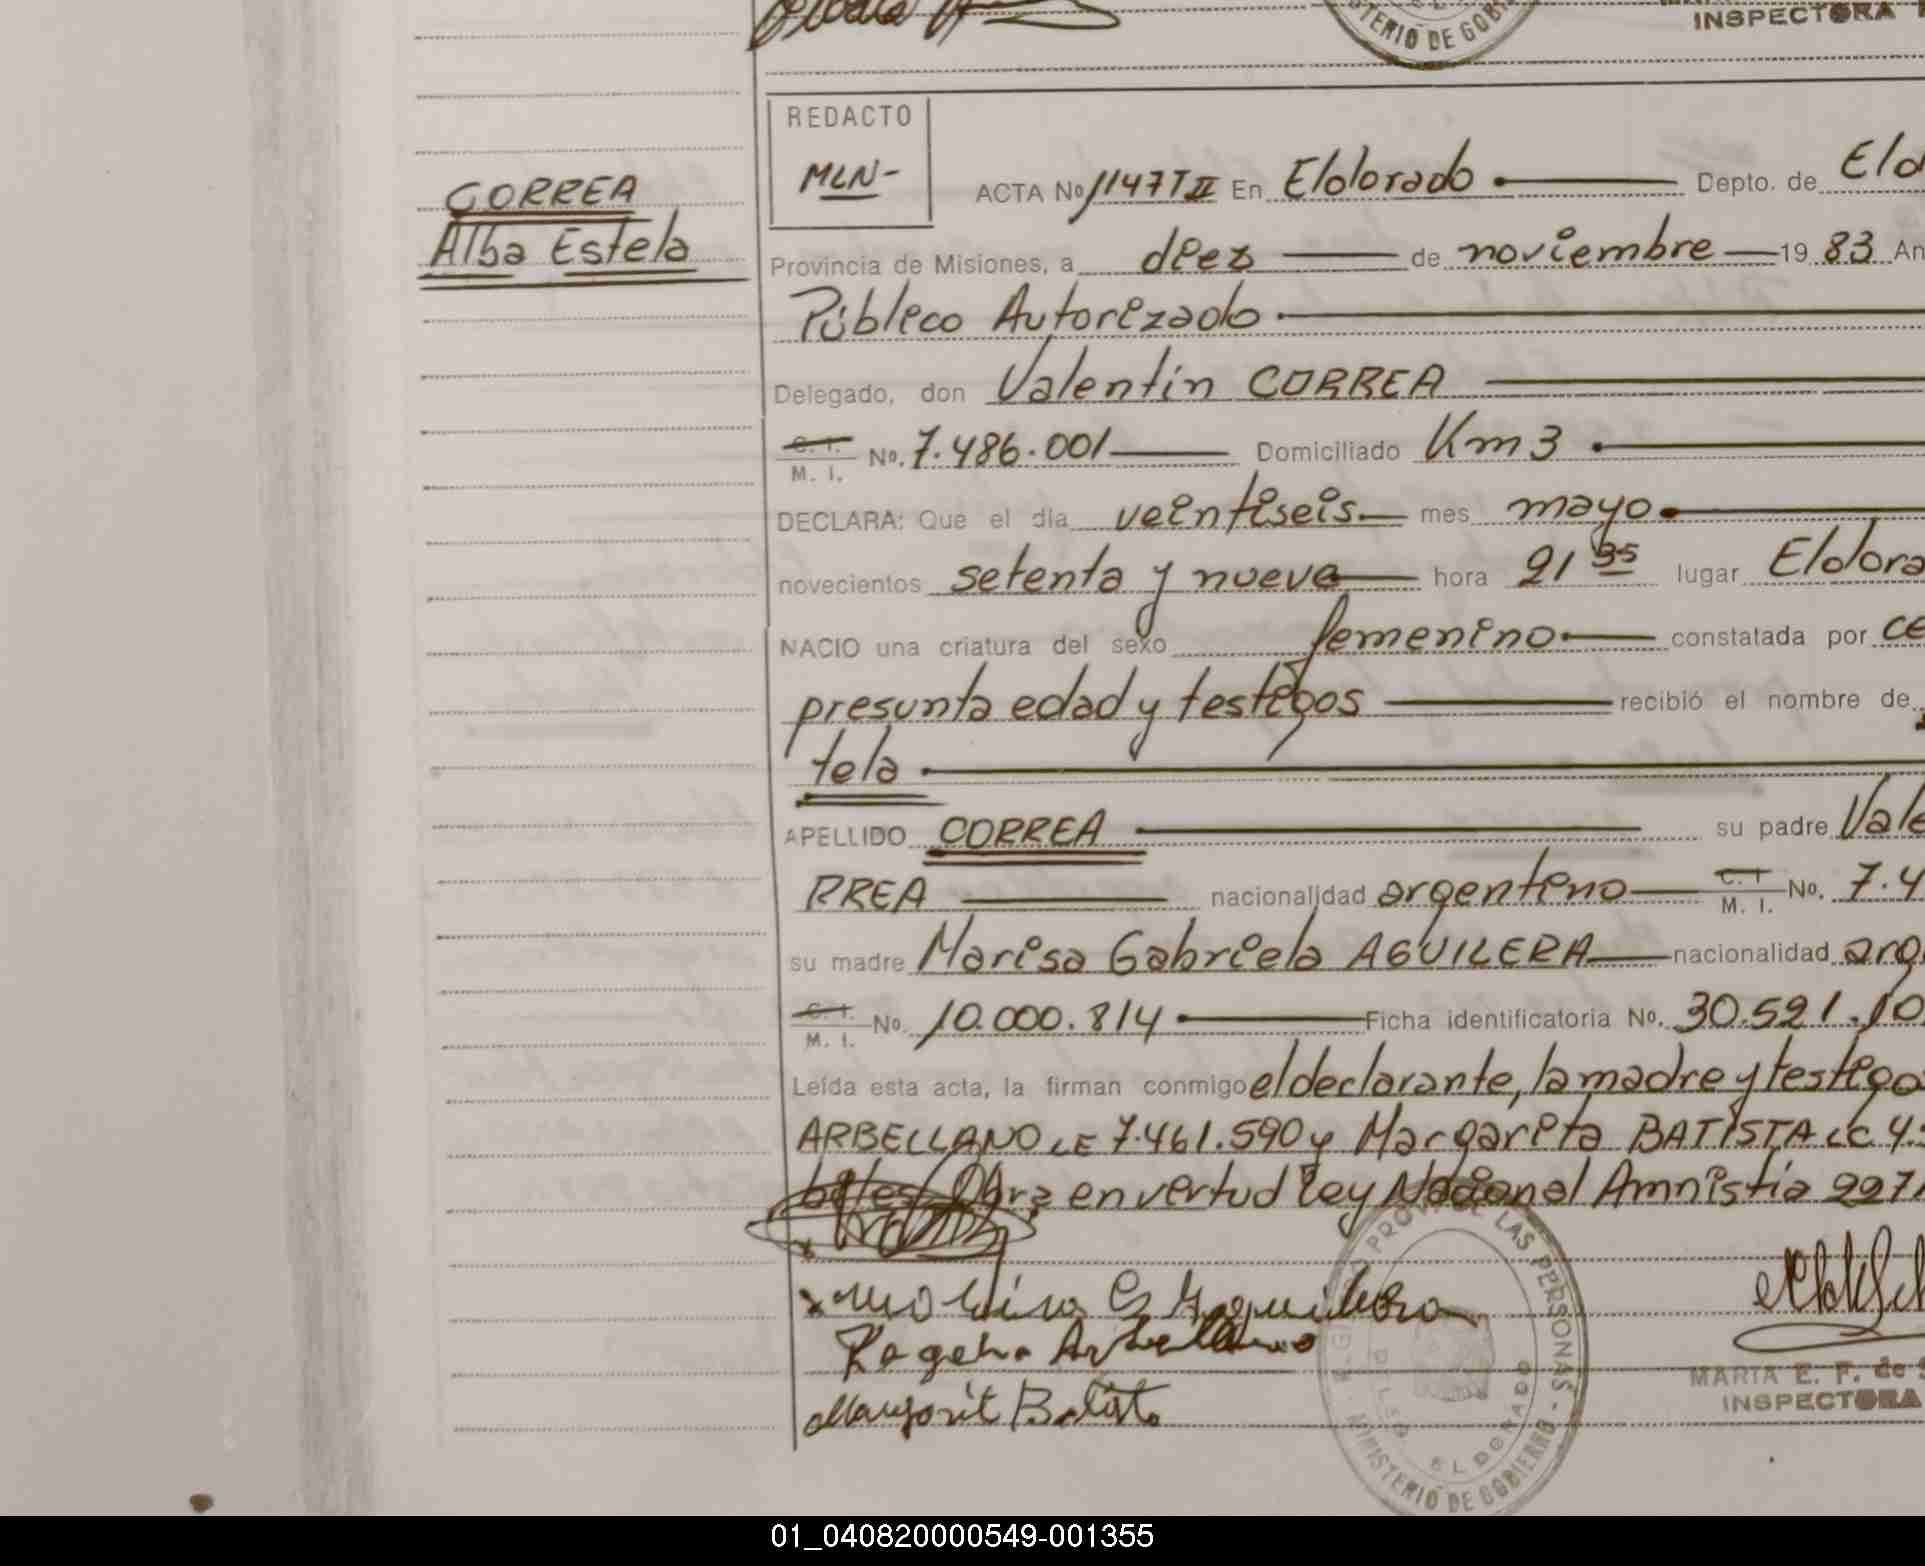 TERIO DE GOBI
INSPECTORA
REDACTO
MLN-
CORREA
Alba Estela
ACTA Nº 1147 T II En Eldorado Depto. de Eld
Provincia de Misiones, a diez de noviembre 19 83 An
Público Autorizado
Delegado, don Valentín CORREA
C. I. M. I. No. 7.486.001 Domiciliado Km 3
DECLARA: Que el día veintiseis mes mayo
novecientos setenta y nueve hora 21 35 lugar Eldora
NACIO una criatura del sexo femenino constatada por ce
presunta edad y testigos recibió el nombre de
tela
APELLIDO CORREA su padre Vale
RREA nacionalidad argentino C. I. M. I. No. 7.4
su madre Marisa Gabriela AGUILERA nacionalidad arg
C. I. M. I. No. 10.000.814 Ficha identificatoria No. 30.521.10
Leída esta acta, la firman conmigo el declarante, la madre y testigo
ARBELLANO LE 7.461.590 y Margarita BATISTA LC 4.
en virtud Ley Nacional Amnistía 227
PROV. DE LAS PERSONAS
MINISTERIO DE GOBIERNO
ELDORADO
MARIA E. F. de S
INSPECTORA
01_040820000549-001355